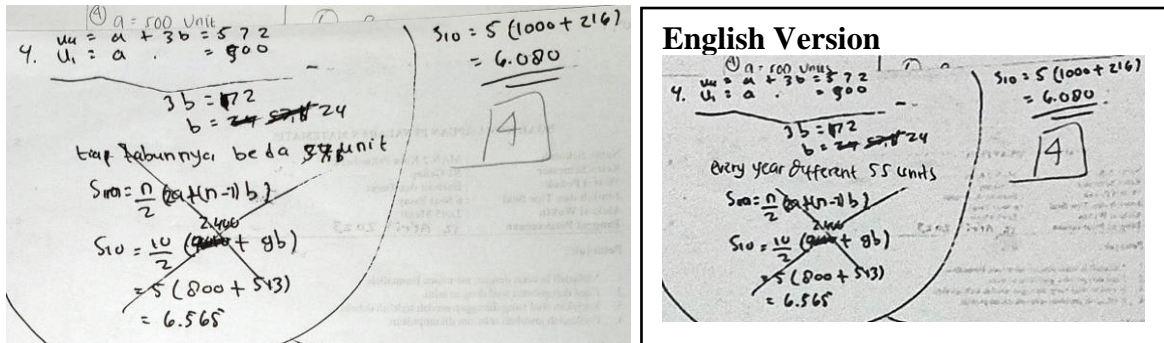 ④ a = 500 Unit
4. U4 = a + 3b = 572
U1 = a . = 500
3b = 72
b = 24
tiap tahunnya beda unit
Sn = n/2 (2a + (n-1) b)
2.400
S10 = 10/2 ( + 9b)
= 5 (800 + 513)
= 6.565
S10 = 5 (1000 + 216)
= 6.080
4
English Version
④ a = 500 Units
4. U4 = a + 3b = 572
U1 = a . = 500
3b = 72
b = 24
every year different 55 units
Sn = n/2 (2a + (n-1) b)
S10 = 10/2 ( + 9b)
= 5 (800 + 513)
= 6.565
S10 = 5 (1000 + 216)
= 6.080
4